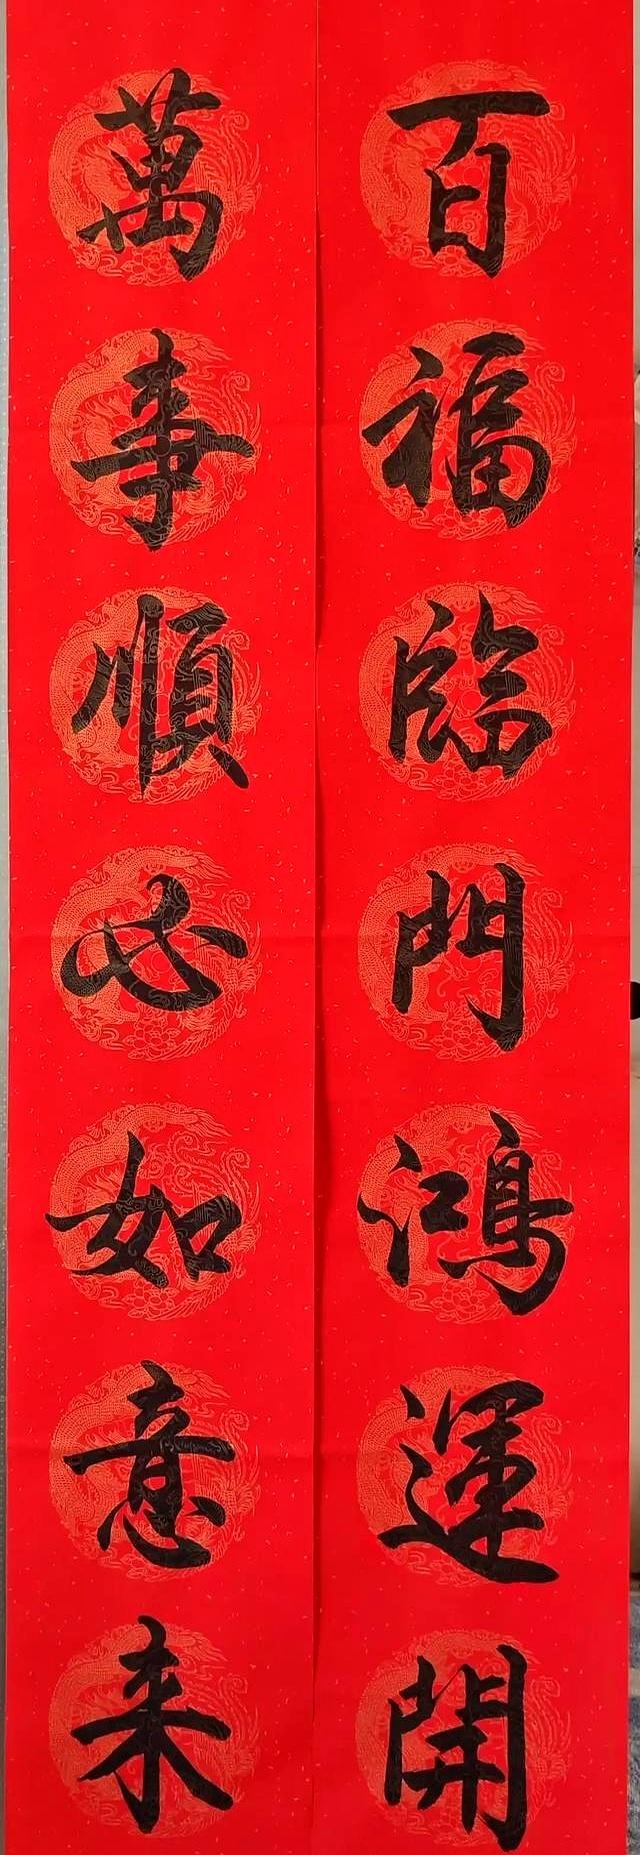 百福臨門鴻運開
萬事順心如意来